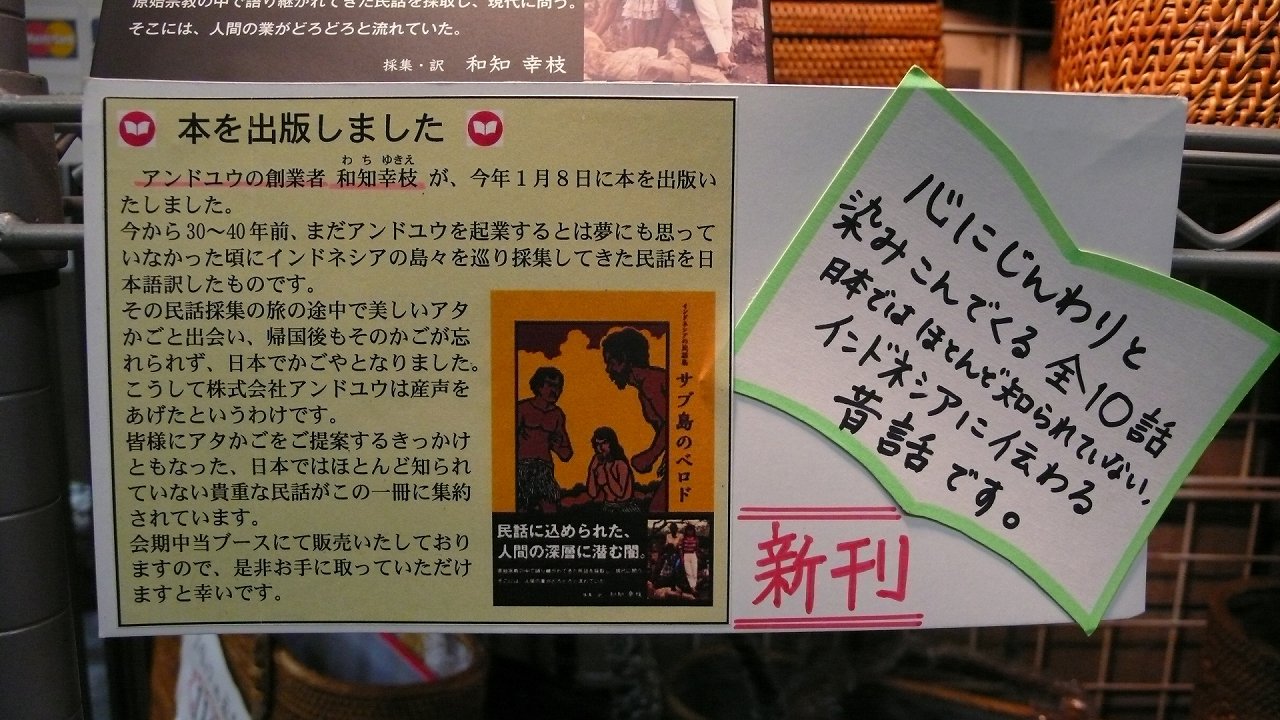 原始宗教の中で語り継がれてきた民話を採取し、現代に問う。
そこには、人間の業がどろどろと流れていた。
採集・訳 和知 幸枝
本を出版しました
わ ち ゆきえ
アンドユウの創業者 和知幸枝 が、今年1月8日に本を出版い
たしました。
今から30〜40年前、まだアンドユウを起業するとは夢にも思って
いなかった頃にインドネシアの島々を巡り採集してきた民話を日
本語訳したものです。
その民話採集の旅の途中で美しいアタ
かごと出会い、帰国後もそのかごが忘
れられず、日本でかごやとなりました。
こうして株式会社アンドユウは産声を
あげたというわけです。
皆様にアタかごをご提案するきっかけ
ともなった、日本ではほとんど知られ
ていない貴重な民話がこの一冊に集約
されています。
会期中当ブースにて販売いたしており
ますので、是非お手に取っていただけ
ますと幸いです。
インドネシアの民話集
サブ島のベロド
民話に込められた、
人間の深層に潜む闇。
原始宗教の中で語り継がれてきた民話を採取し、現代に問う。
そこには、人間の業がどろどろと流れていた。
採集・訳 和知 幸枝
心にじんわりと
染みこんでくる 全10話
日本では ほとんど知られていない、
インドネシアに伝わる
昔話です。
新刊
MasterCard